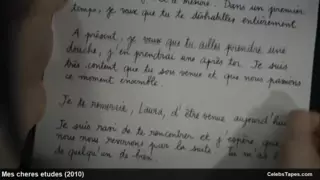 à mettre. Dans un premier
temps, je veux que tu te déshabilles entièrement
A présent, je veux que tu ailles prendre une
douche, j'en prendrai une après toi. Je suis
très content que tu sois venue et que nous passions
ce moment ensemble.
Je te remercie, Laura, d'être venue aujourd'hui
Je suis ravi de te rencontrer et j'espère que
nous nous reverrons par la suite. Tu m'as
de quelqu'un de bien
Mes cheres etudes (2010)
CelebsTapes.com